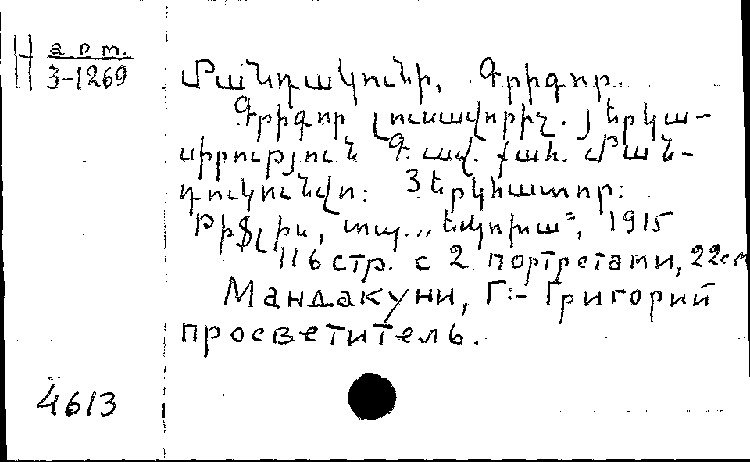 Н арт.
3-1269
Մանդակունի, Գրիգոր.
Գրիգոր լուսավորիչ. յերկա-
սիրություն Գ. ավ. քահ. Ման-
դակունվո: 3 երկհատոր:
Թիֆլիս, տպ. „Էսկուիա“, 1915
116 стр. с 2 портретами, 22см
Мандакуни, Г:- Григорий
просветитель.
4613